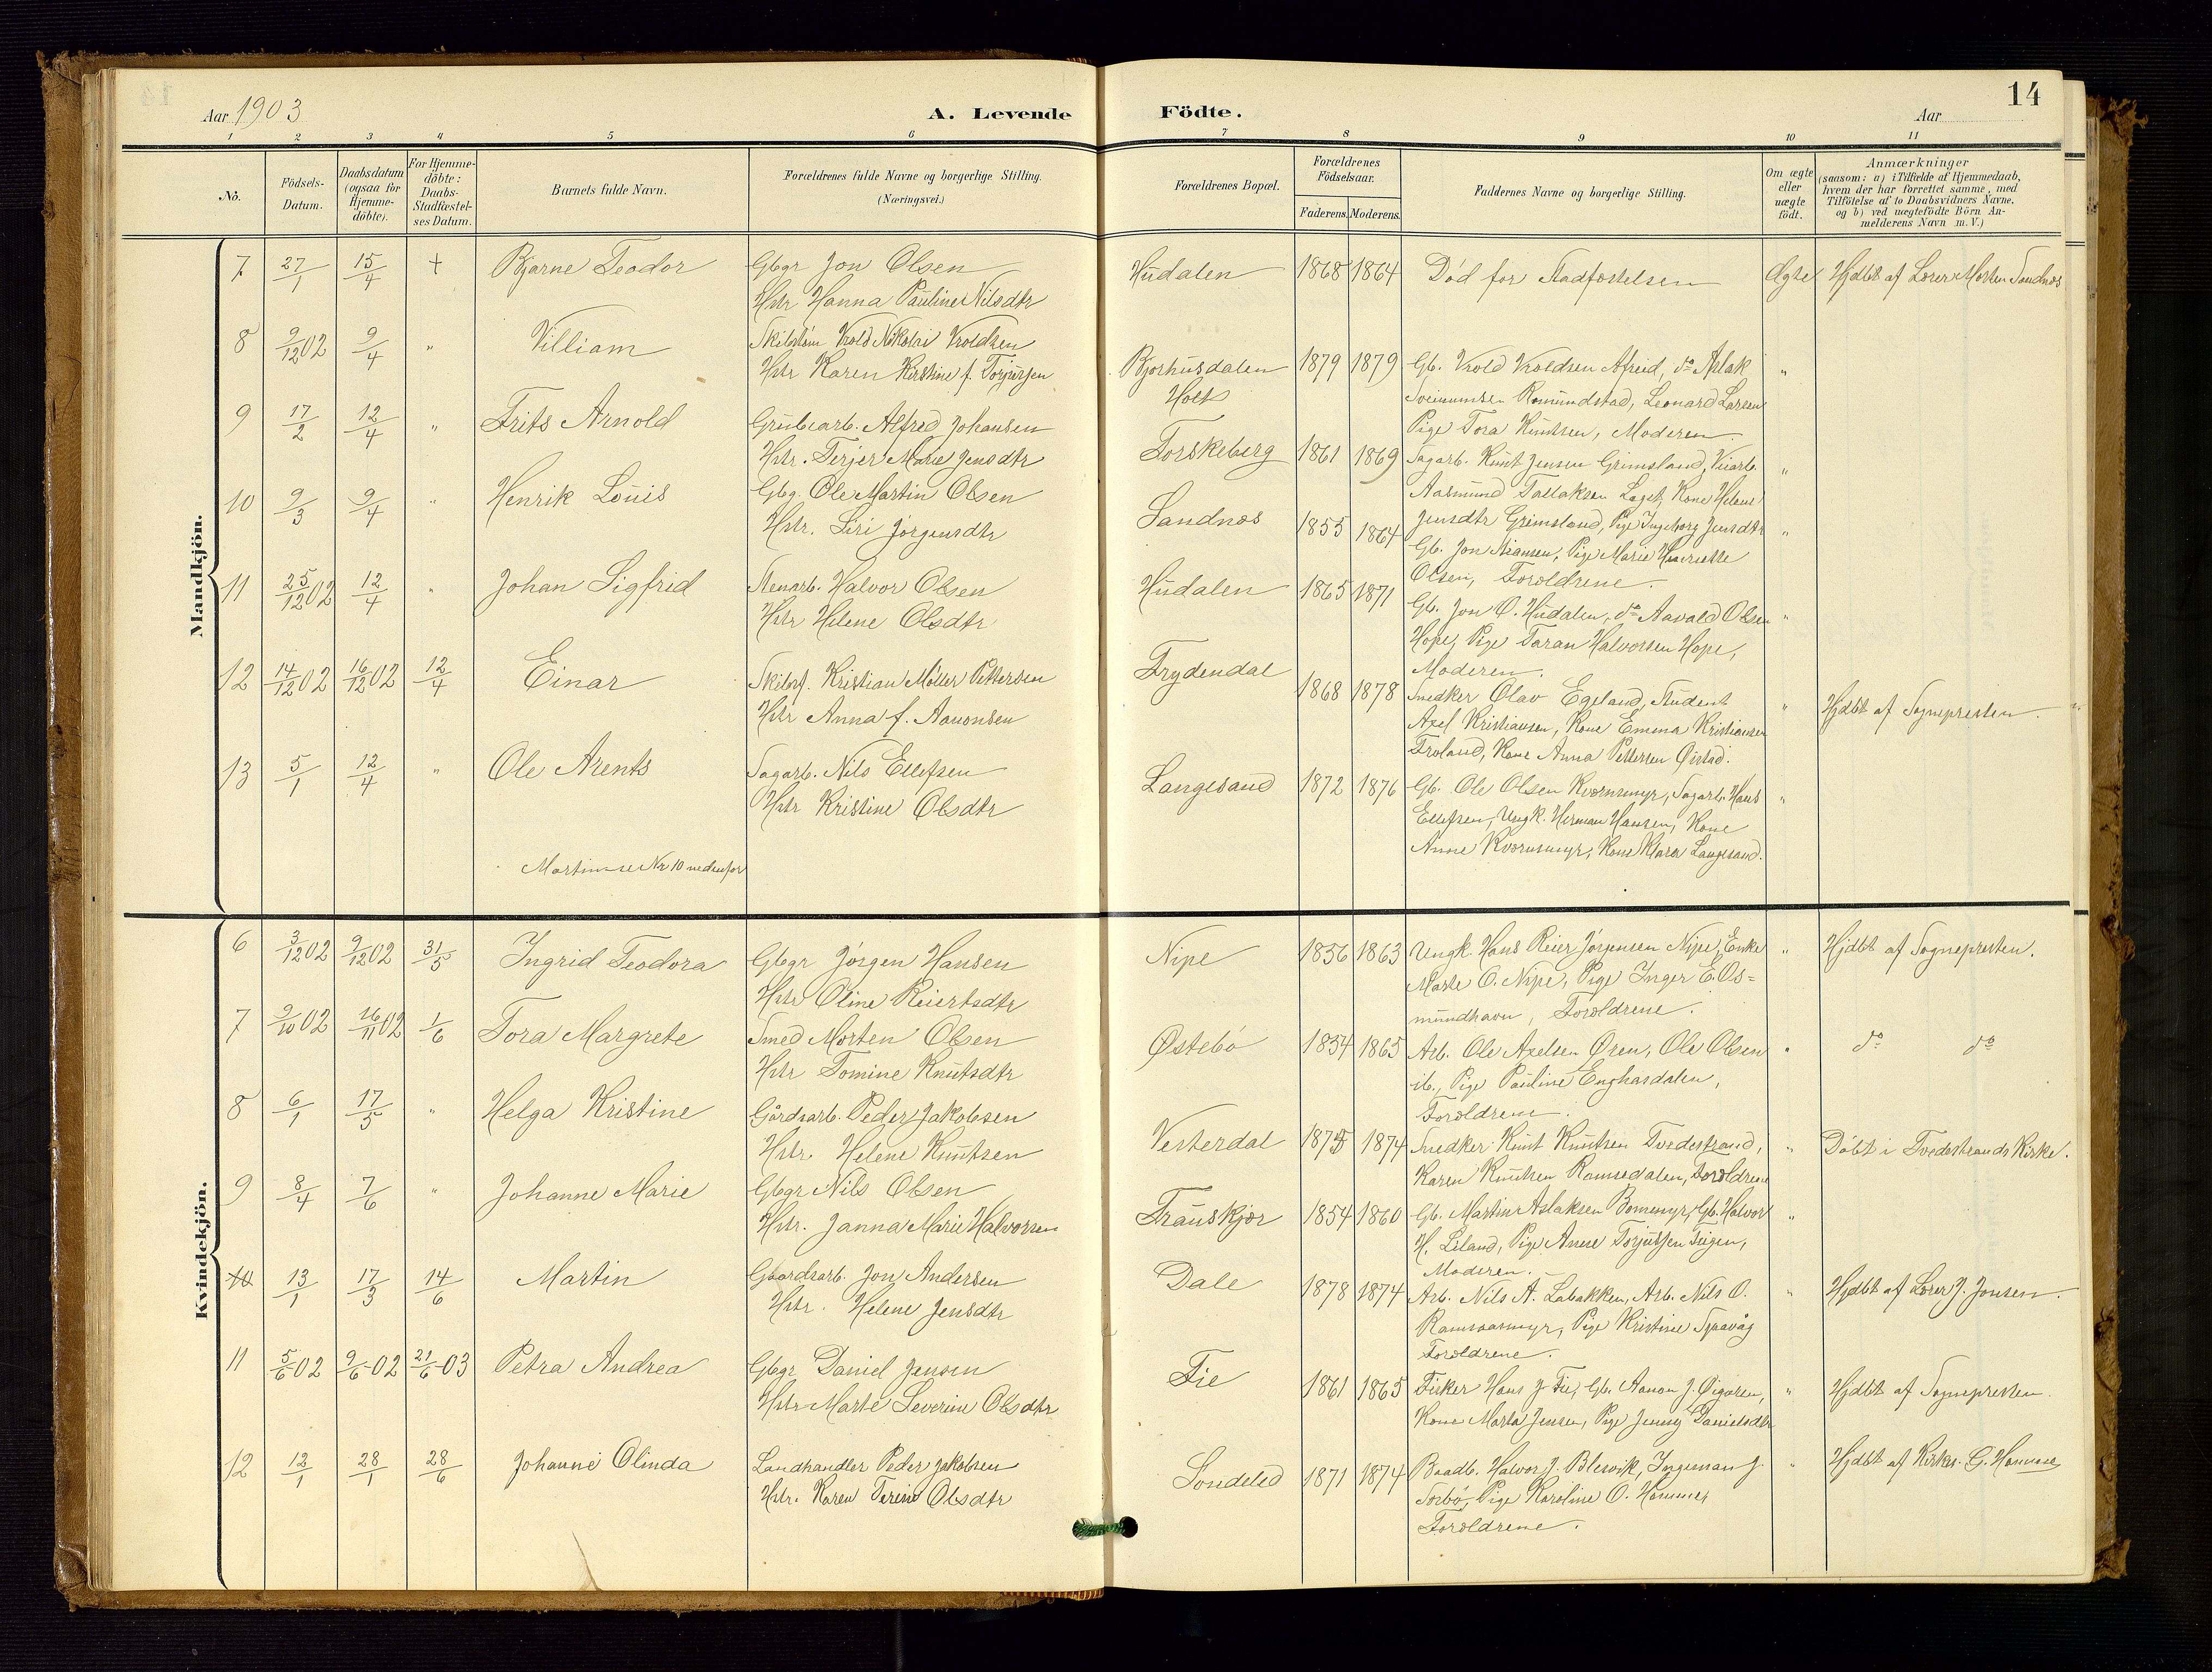 Aar 1903
A. Levende Födte.
Aar
14
1 2 3 4 5 6 7 8 9 10 11
No.
Födsels-Datum.
Daabsdatum (ogsaa for Hjemme-döbte).
For Hjemme-döbte: Daabs-Stadfæstel-ses Datum.
Barnets fulde Navn.
Forældrenes fulde Navne og borgerlige Stilling.
(Næringsvei.)
Forældrenes Bopæl.
Forældrenes Födselsaar.
Faderens. Moderens.
Faddernes Navne og borgerlige Stilling.
Om ægte eller uægte födt.
Anmærkninger
(saasom: a) i Tilfælde af Hjemmedaab,
hvem der har forrettet samme, med
Tilföielse af to Daabsvidners Navne,
og b) ved uægtefödte Börn An-
melderens Navn m.V.)
Mandkjön.
7 27/1 15/4 + Bjarne Teodor Gbgr Jon Olsen Hudalen 1868 1864 Död før Stadfæstelsen Ægte Hjdbt af Lærer Morten Sandnæs
Hstr Hanna Pauline Nilsdtr
8 9/12 02 9/4 " Villiam Skibstøm. Vrold Nikolai Vroldsen
Hstr Karen Kirstine f. Torjusen Bjorhusdalen 1879 1879 Gb. Vrold Vroldsen Afreid, do Aslak "
Holt Romundstad, Leonard Larsen
Pige Tora Knutsen, Moderen.
9 17/2 12/4 " Frits Arnold Grubearb. Alfred Johansen
Hstr. Terjer Marie Jensdtr Torskeberg 1861 1869 Sagarb. Knut Jensen Grimsland, Veiarb. "
Aasmund Tallaksen Laget, Kone Helene
Jensdtr Grimsland, Pige Ingeborg Jensdtr
10 9/3 9/4 " Henrik Louis Gbg. Ole Martin Olsen
Hstr. Siri Jørgensdtr Sandnæs 1855 1864 "
Gb. Jon Pige Marie Henriette
Olsen, Forældrene.
11 25/12 02 12/4 " Johan Sigfrid Stenarb. Halvor Olsen Hudalen 1865 1871
Hstr Helene Olsdtr Gb. Jon O. Hudalen, do Aavald Olsen "
Hope, Pige Taran Halvorsen Hope,
Moderen.
12 14/12 02 16/12 02 12/4 Einar Skibsf. Kristian Møller Pettersen Frydendal
Hstr Anna f. Aanonsen 1868 1878 Snedker Olav Egeland, Student " Hjdbt af Sognepresten. "
Axel Kristiansen, Kone Emma Kristiansen
Froland, Kone Anna Pettersen Østad.
13 5/1 12/4 " Ole Arents Sagarb. Nils Ellefsen
Hstr Kristine Olsdtr Langesand 1872 1876 Gb. Ole Olsen Kværnmyr, Sagarb. Hans "
Ellefsen, Ungk. Herman Hansen, Kone
Anne Kværnsmyr, Kone Klara Langesand.
Martin se Nr 10 nedenfor
Kvindekjön.
6 3/12 02 9/12 02 31/5 Ingrid Teodora Gbgr Jørgen Hansen Nipe 1856 1863 Ungk. Hans Reier Jørgensen Nipe, Enke " Hjdbt af Sognepresten.
Hstr Oline Reiertsdtr Marte O. Nipe, Pige Inger E. Os=
mundhavn, Forældrene.
7 9/10 02 16/11 02 1/6 Tora Margrete Smed Morten Olsen Østebö 1854 1865 Arb. Ole Axelsen Øren, Ole Olsen " do do
Hstr Tomine Knutsdtr ib., Pige Pauline Enghardalen,
Forældrene.
8 6/1 17/5 " Helga Kristine Gårdsarb. Peder Jakobsen
Hstr. Helene Knutsen Vesterdal 1875 1874 Snedker Knut Knutsen Tvedestrand, " Döbt i Tvedestrands Kirke.
Karen Knutsen Ramsdalen, Forældrene
9 8/4 7/6 " Johanne Marie Gbgr Nils Olsen
Hstr. Janna Marie Halvorsen Trauskjær 1854 1860 Gb. Martin Aslaksen Bommyr, Gb. Halvor "
H. Leland, Pige Anne Torjussen Teigen,
Moderen.
10 13/1 17/3 14/6 Martin Gaardsarb. Jon Andersen Dale 1878 1874 Arb. Nils A. Labakken, Arb. Nils O. " Hjdbt af Lærer J. Jonsen.
Hstr. Helene Jensdtr Pige Kristine Sjaavåg
Forældrene.
11 5/6 02 9/6 02 21/6 03 Petra Andrea Gbgr Daniel Jensen Fie 1861 1865 Fisker Hans J. Fie, Gb. Aanon J. Øigaren, " Hjdbt af Sognepresten.
Hstr Marte Severine Olsdtr Kone Marta Jensen, Pige Jenny Danielsdtr
12 12/1 28/1 28/6 Johanne Olinda Landhandler Peder Jakobsen Söndeled 1871 1874 Baadb. Halvor J. Blesvik, Ingeman J. " Hjdbt af Kirkes. G. Hammer
Hstr. Karen Terine Olsdtr Sorbö, Pige Karoline O. Hammer
Forældrene.